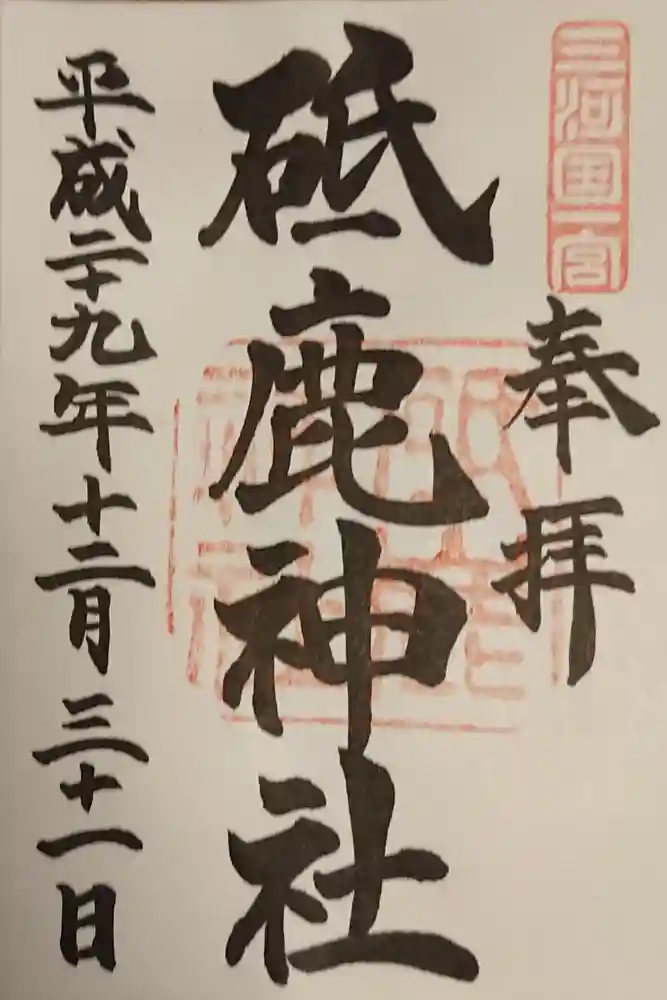 三河国一宮
奉拝
砥鹿神社
平成二十九年十二月三十一日